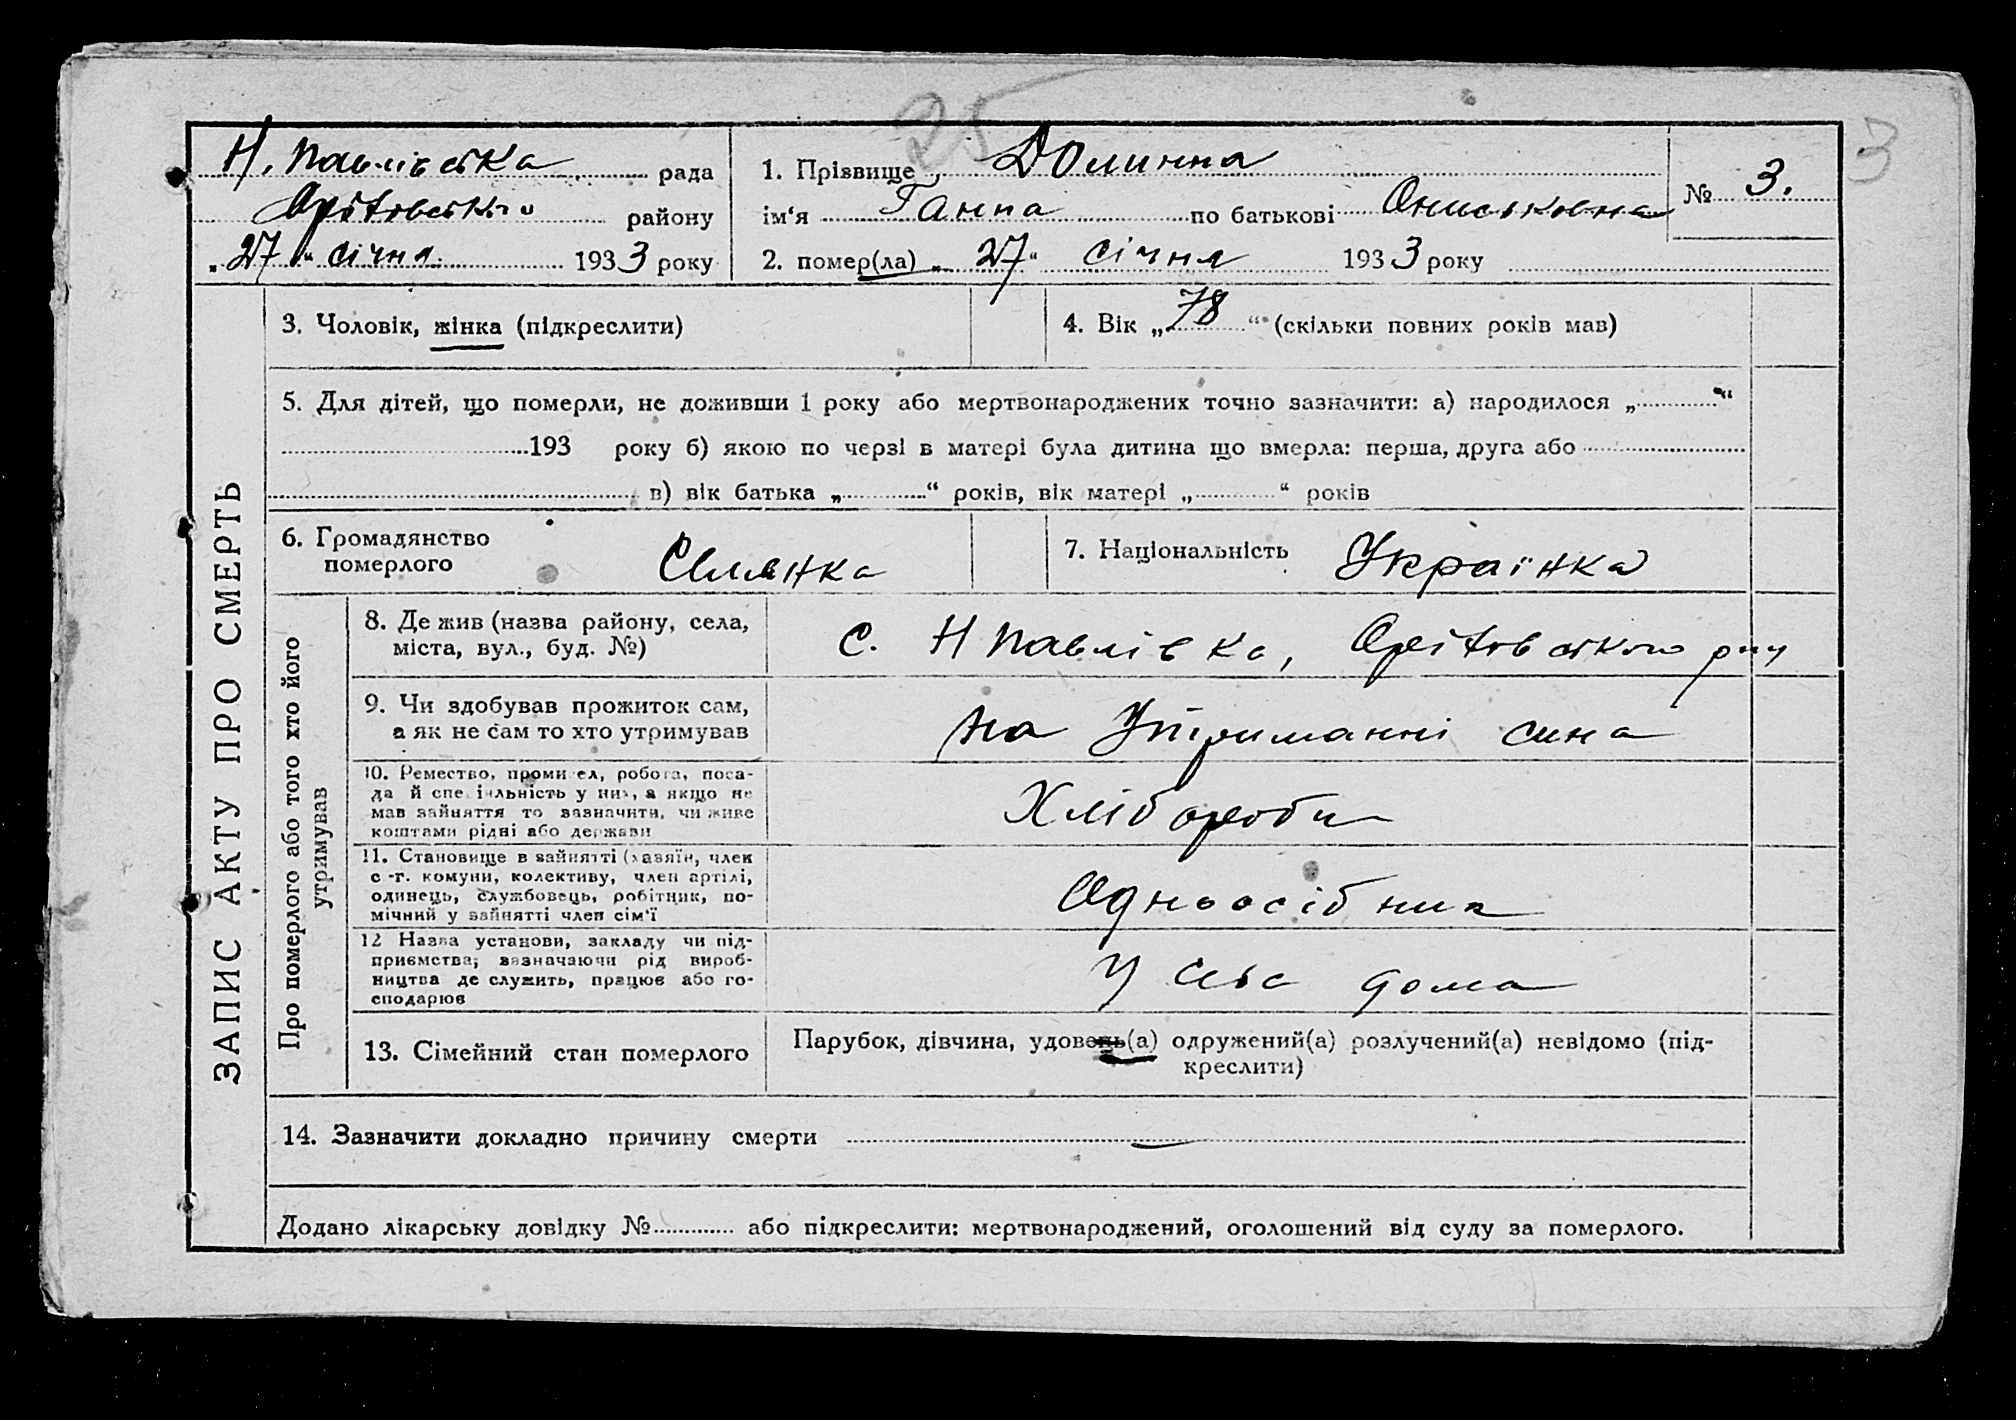 25
3
Н. Павлівська рада
Орітовського району
„27“ січня 1933 року
1. Прізвище Долинна
ім‘я Ганна по батькові Ониськовна
№ 3.
2. помер(ла) „27“ січня 1933 року
ЗАПИС АКТУ ПРО СМЕРТЬ
3. Чоловік, жінка (підкреслити)
4. Вік „78“ (скільки повних років мав)
5. Для дітей, що померли, не доживши 1 року або мертвонароджених точно зазначити: а) народилося „ “
193 року б) якою по черзі в матері була дитина що вмерла: перша, друга або
в) вік батька „ “ років, вік матері „ “ років
6. Громадянство
померлого
Селянка
7. Національність Українка
Про померлого або того хто його
утримував
8. Де жив (назва району, села,
міста, вул., буд. №)
с. Н Павлівка, Орітовського р-ну
9. Чи здобував прожиток сам,
а як не сам то хто утримував
на Утриманні сина
10. Ремество, промисел, робота, поса-
да й спеціяльність у них, а якщо не
мав зайняття то зазначити, чи живе
коштами рідні або держави
Хлібороби
11. Становище в зайнятті (хазяїн, член
с.-г. комуни, колективу, член артілі,
одинець, службовець, робітник, по-
мічний у зайнятті член сім‘ї
Одноосібник
12 Назва установи, закладу чи під-
приємства, зазначаючи рід вироб-
ництва де служить, працює або го-
сподарює
У себе дома
13. Сімейний стан померлого
Парубок, дівчина, удовець(а) одружений(а) розлучений(а) невідомо (під-
креслити)
14. Зазначити докладно причину смерти —
Додано лікарську довідку № або підкреслити: мертвонароджений, оголошений від суду за померлого.